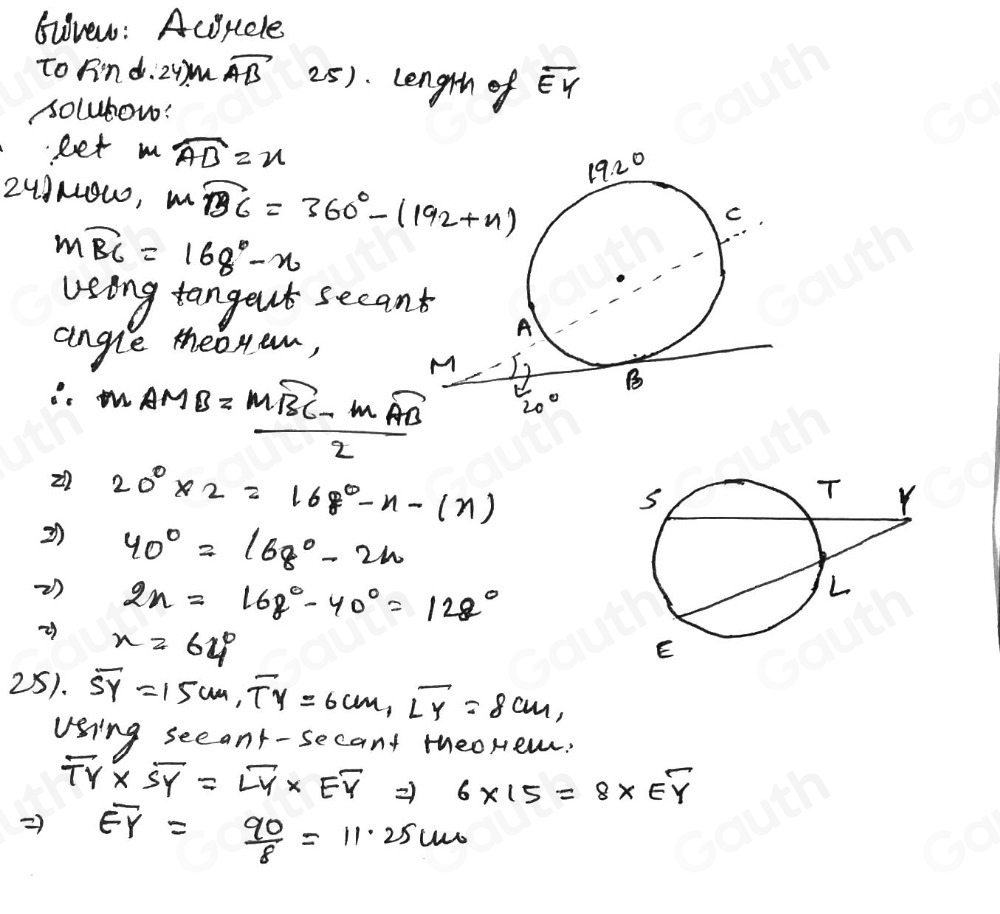 Given: A circle
To Find: 24) m AB 25). Length of EY
solution:
let m AB = x
24) Now, m BC = 360° - (192 + x)
m BC = 168° - x
Using tangent secant
angle theorem,
∴ m AMB = m BC - m AB
2
⇒ 20° × 2 = 168° - x - (x)
⇒ 40° = 168° - 2x
⇒ 2x = 168° - 40° = 128°
⇒ x = 64°
192°
C
A
M
B
20°
S
T
Y
L
E
25). SY = 15 cm, TY = 6 cm, LY = 8 cm,
Using secant-secant theorem.
TY × SY = LY × EY ⇒ 6 × 15 = 8 × EY
⇒ EY = 90/8 = 11.25 cm.
Gauth